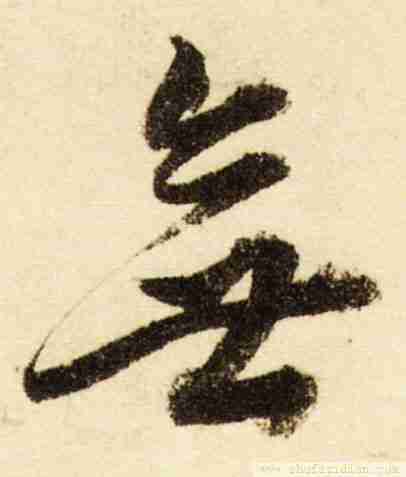 無
www.shufazidian.com